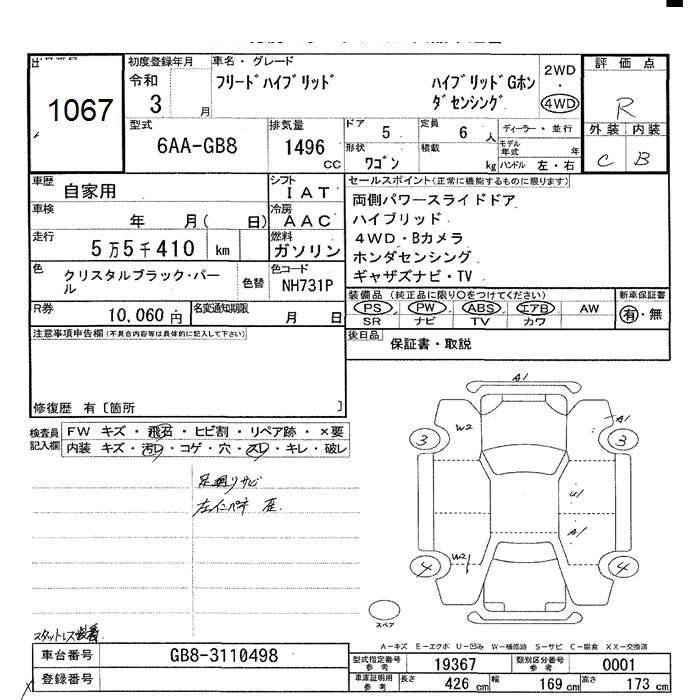 1067
初度登録年月
令和
3 月
車名・グレード
フリードハイブリッド ハイブリッドGホン
ダセンシング
2WD
・
4WD
評価点
R
外装 内装
C B
型式
6AA-GB8
排気量
1496
cc
ドア 5
定員 6 人
形状 ワゴン
積載 kg
ディーラー・並行
モデル年式 年
ハンドル 左・右
車歴 自家用
シフト IAT
車検 年 月( 日)
冷房 AAC
走行 5万5千410 km
燃料 ガソリン
色 クリスタルブラック・パー
ル
色替
色コード
NH731P
R券 10,060円
名変通知期限 月 日
セールスポイント(正常に機能するものに限ります)
両側パワースライドドア
ハイブリッド
4WD・Bカメラ
ホンダセンシング
ギャザズナビ・TV
装備品(純正品に限り○をつけてください)
PS PW ABS エアB AW
SR ナビ TV カワ
新車保証書
有・無
後日品 保証書・取説
注意事項申告欄(不具合内容等は具体的に記入して下さい)
修復歴 有〔箇所 〕
検査員
記入欄
FW キズ・飛石・ヒビ割・リペア跡・×要
内装 キズ・汚レ・コゲ・穴・スレ・キレ・破レ
足廻リサビ
スタットレス装着
A1
W2
A1
3
3
U1
A1
W2
4
4
スペア
A-キズ E-エクボ U-凹み W-補修跡 S-サビ C-腐食 XX-交換済
車台番号 GB8-3110498
登録番号
型式指定番号
参考
19367
類別区分番号
参考
0001
車庫証明用
参考
長さ 426 cm
幅 169 cm
高さ 173 cm